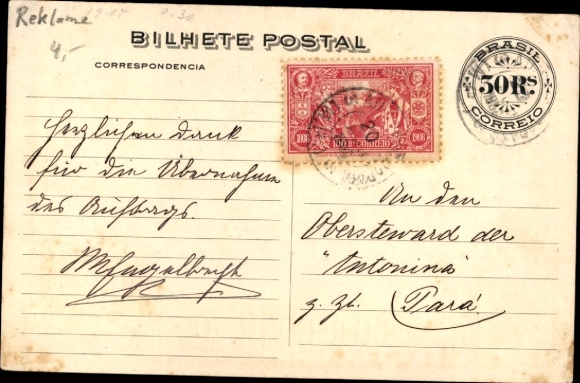 Reklame
4,-
BILHETE POSTAL
CORRESPONDENCIA
BRASIL
50 Rs.
CORREIO
BRAZIL
1808
100 Rs CORREIO
1908
Herzlichen Dank
für die Übernahme
des Auftrags.
An den
Obersteward der
"Antonina"
z. Zt. Pará